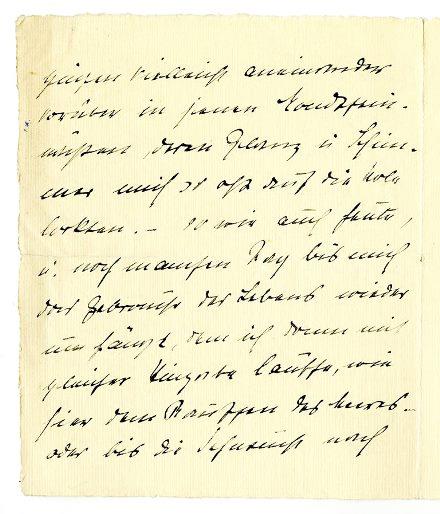 gingen vielleicht aneinander
vorüber in jenen Mondschein-
nächten, deren Glanz u Schim-
mer mich so oft auf die Mole
lockten. – so wie auch heute,
u. noch manchen Tag bis mich
das Gebrause des Lebens wieder
umfängt, dem ich dann mit
gleicher Hingabe lausche, wie
hier dem Rauschen des Meeres –
oder bis die Sehnsucht nach